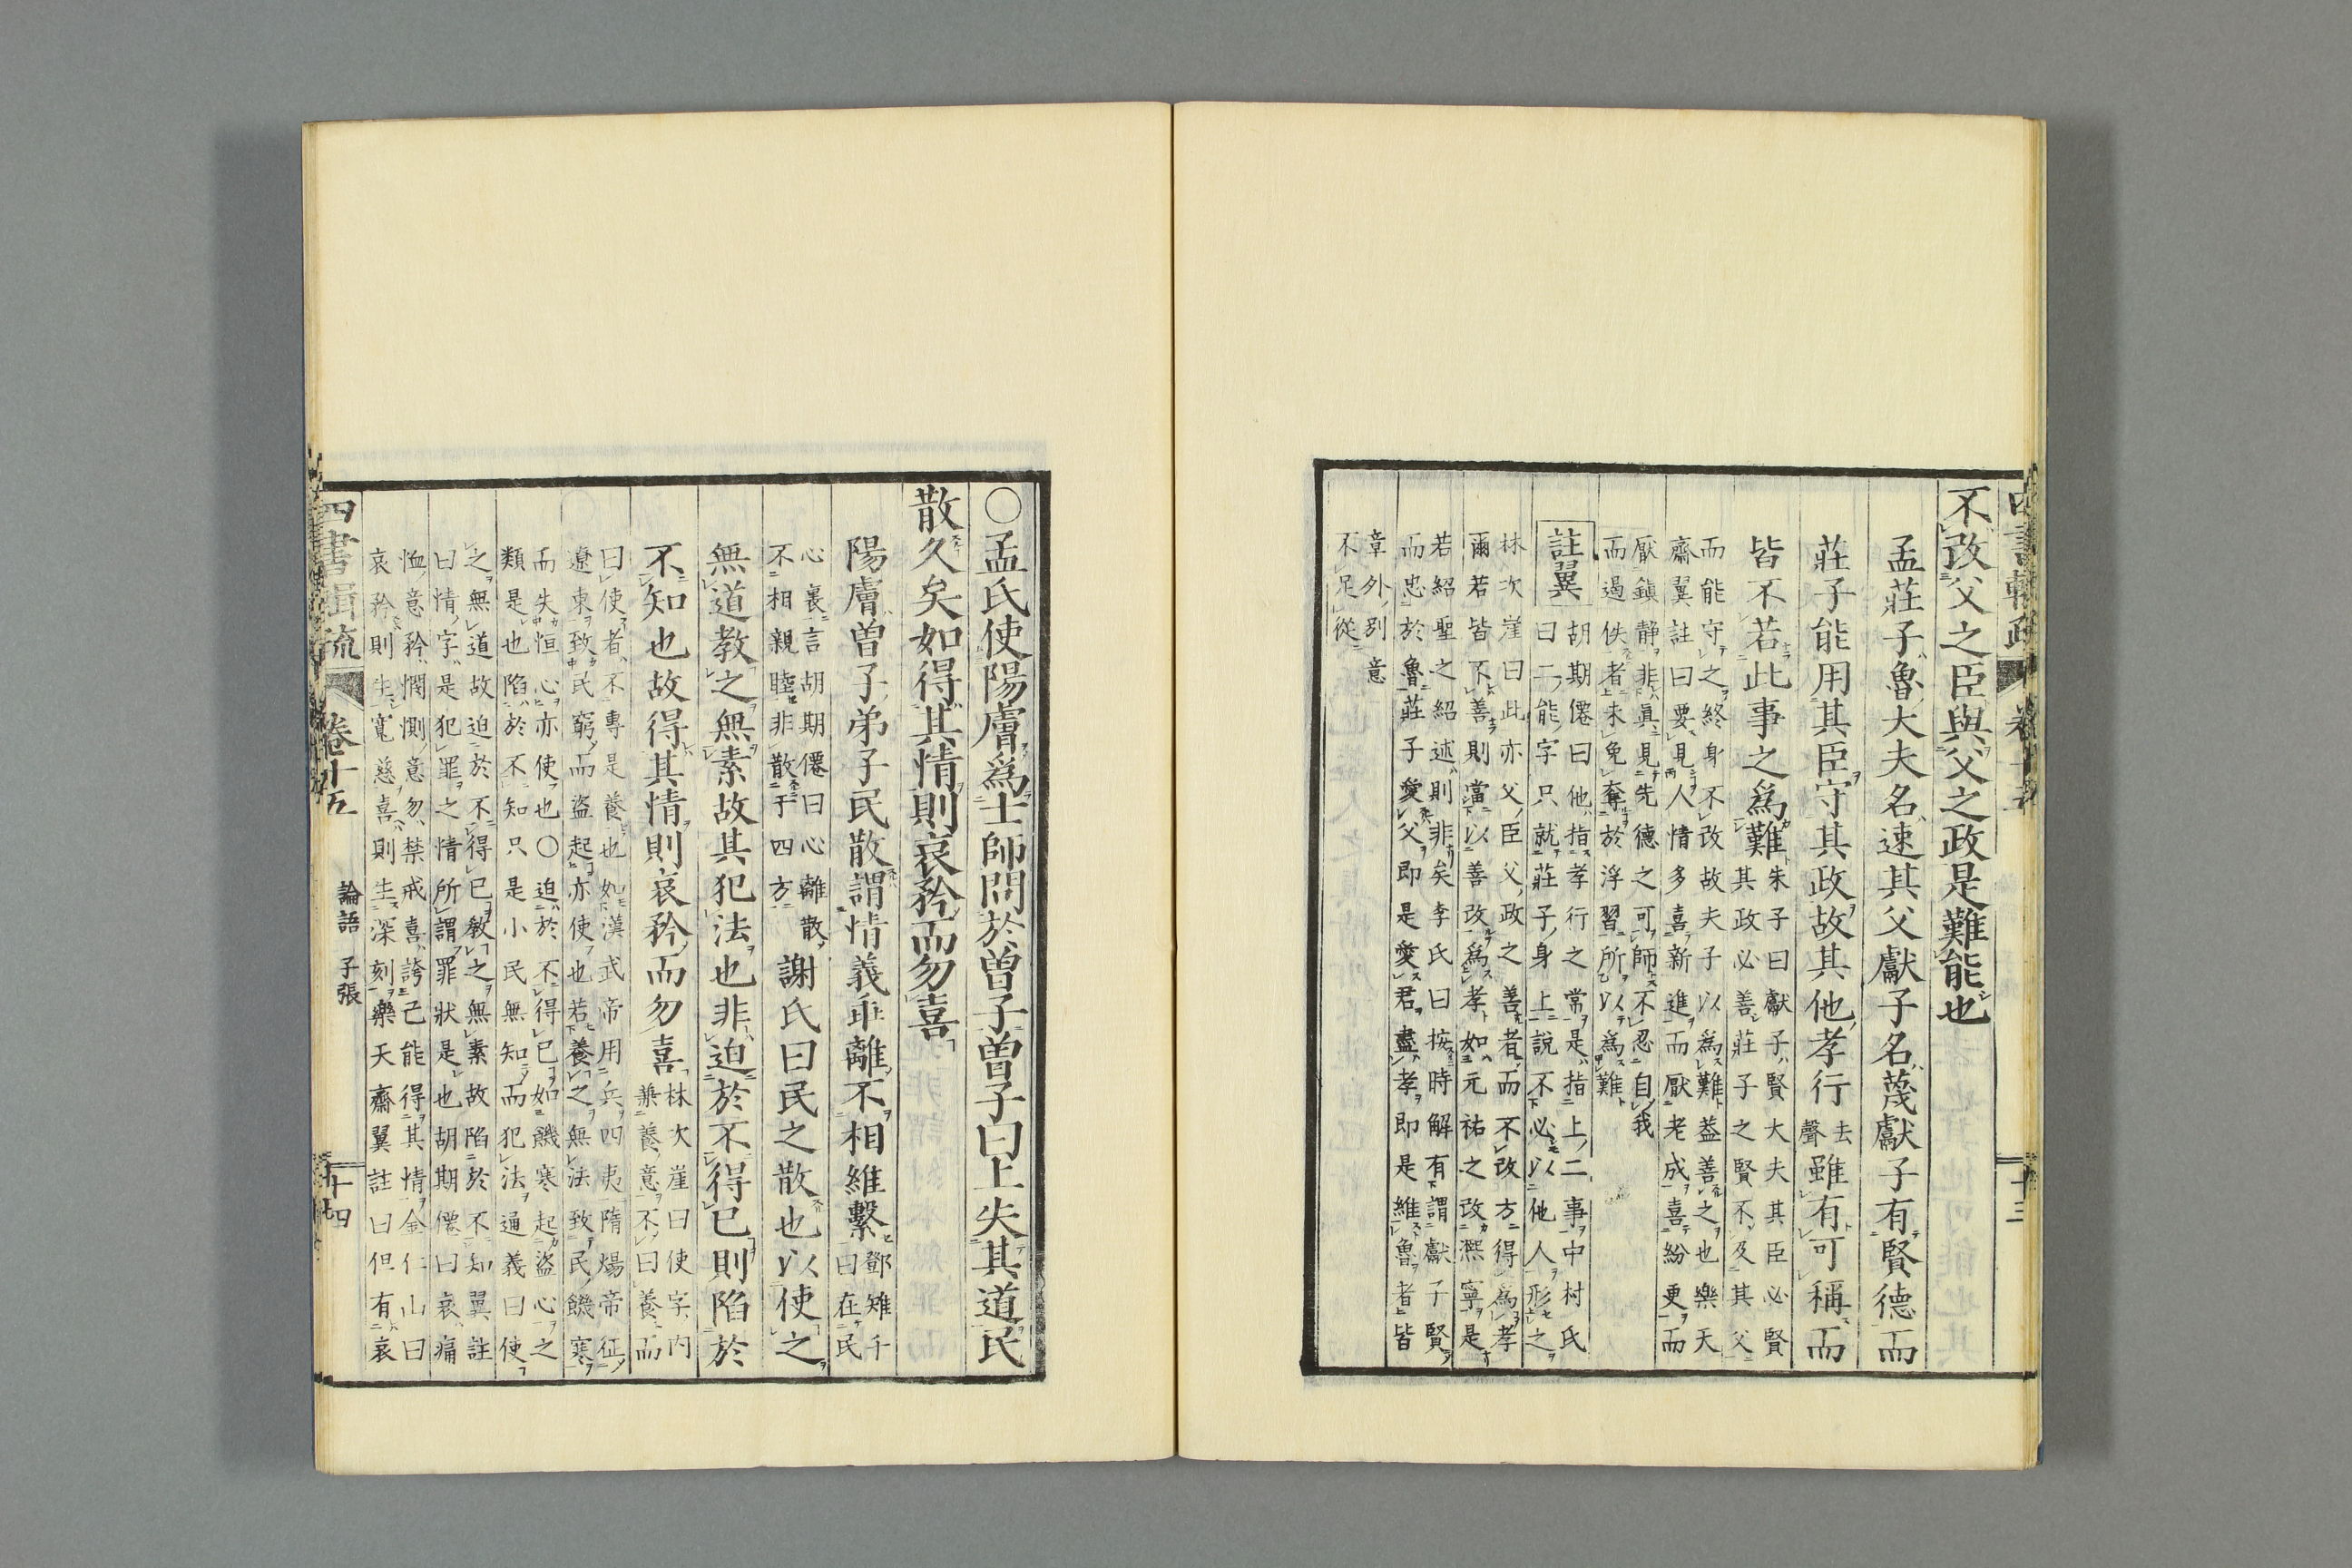 不改父之臣與父之政是難能也
孟莊子魯大夫名速其父獻子名蔑獻子有賢德而
莊子能用其臣守其政故其他孝行去聲雖有可稱而
皆不若此事之爲難朱子曰獻子賢大夫其臣必賢
其政必善莊子之賢不及其父
而能守之終身不改故夫子以爲難蓋善之也樂天
齋翼註曰要見人情多喜新進而厭老成喜紛更而
厭鎮静非眞見先德之可師不忍自我
而過佚者未免奪於浮習所以爲難
註翼
胡期僊曰他指孝行之常是指上二事中村氏
曰二能字只就莊子身上說不必以他人形之
林次崖曰此亦父臣父政之善者而不改方得爲孝
爾若皆不善則當以善改爲孝如元祐之改熈寧是
若紹聖之紹述則非矣李氏曰按時解有謂獻子賢
而忠於魯莊子愛父即是愛君盡孝即是維魯者皆
章外別意
不足從
〇孟氏使陽膚爲士師問於曽子曽子曰上失其道民
散久矣如得其情則哀矜而勿喜
陽膚曽子弟子民散謂情義乖離不相維繫鄧雉千
曰在民
心裏言胡期僊曰心離散
不相親睦非散于四方
謝氏曰民之散也以使之
無道教之無素故其犯法也非迫於不得已則陷於
不知也故得其情則哀矜而勿喜林次崖曰使字内
兼養意不曰養而
曰使者不專是養也如漢武帝用兵四夷隋煬帝征
遼東致民窮而盜起亦使也若養之無法致民饑寒
而失恒心亦使也〇迫於不得已如饑寒起盜心之
類是也陷於不知只是小民無知而犯法通義曰使
之無道故迫於不得已教之無素故陷於不知翼註
曰情字是犯罪之情所謂罪狀是也胡期僊曰哀痛
恤意矜憫惻意勿禁戒喜誇己能得其情金仁山曰
哀矜則生寬慈喜則生深刻樂天齋翼註曰但有哀
四書輯疏 卷十五 論語 子張 十四